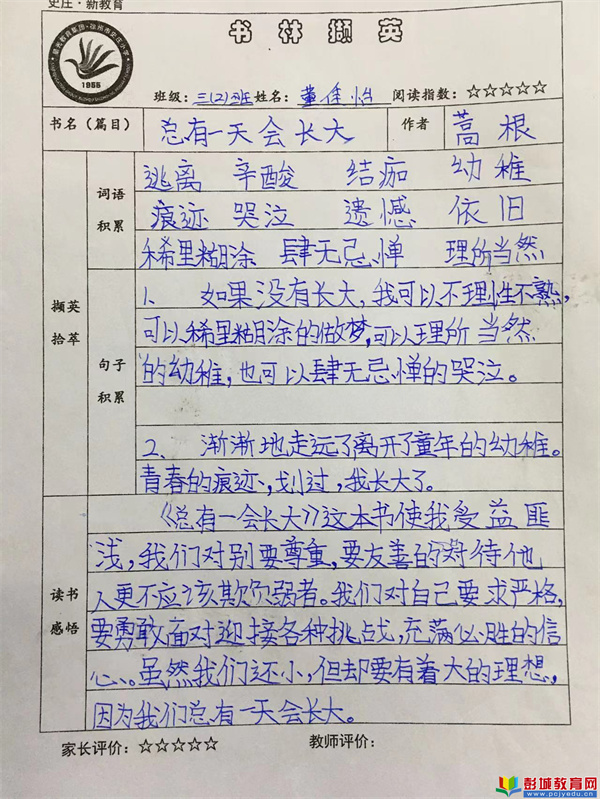 史庄·新教育
书林撷英
1966
班级：三(2)班 姓名：董佳怡 阅读指数：☆☆☆☆☆
书名（篇目） 总有一天会长大 作者 蒿根
撷英拾萃
词语积累
逃离 辛酸 结痂 幼稚
痕迹 哭泣 遗憾 依旧
稀里糊涂 肆无忌惮 理所当然
句子积累
1、如果没有长大，我可以不理性不熟，
可以稀里糊涂的做梦，可以理所当然
的幼稚，也可以肆无忌惮的哭泣。
2、渐渐地走远了离开了童年的幼稚。
青春的痕迹、划过，我长大了。
读书感悟
《总有一会长大》这本书使我受益匪
浅，我们对别要尊重，要友善的对待他
人更不应该欺负弱者。我们对自己要求严格，
要勇敢面对迎接各种挑战，充满必胜的信
心。虽然我们还小，但却要有着大的理想，
因为我们总有一天会长大。
家长评价：☆☆☆☆☆ 教师评价：
彭城教育网
www.pcjyedu.cn